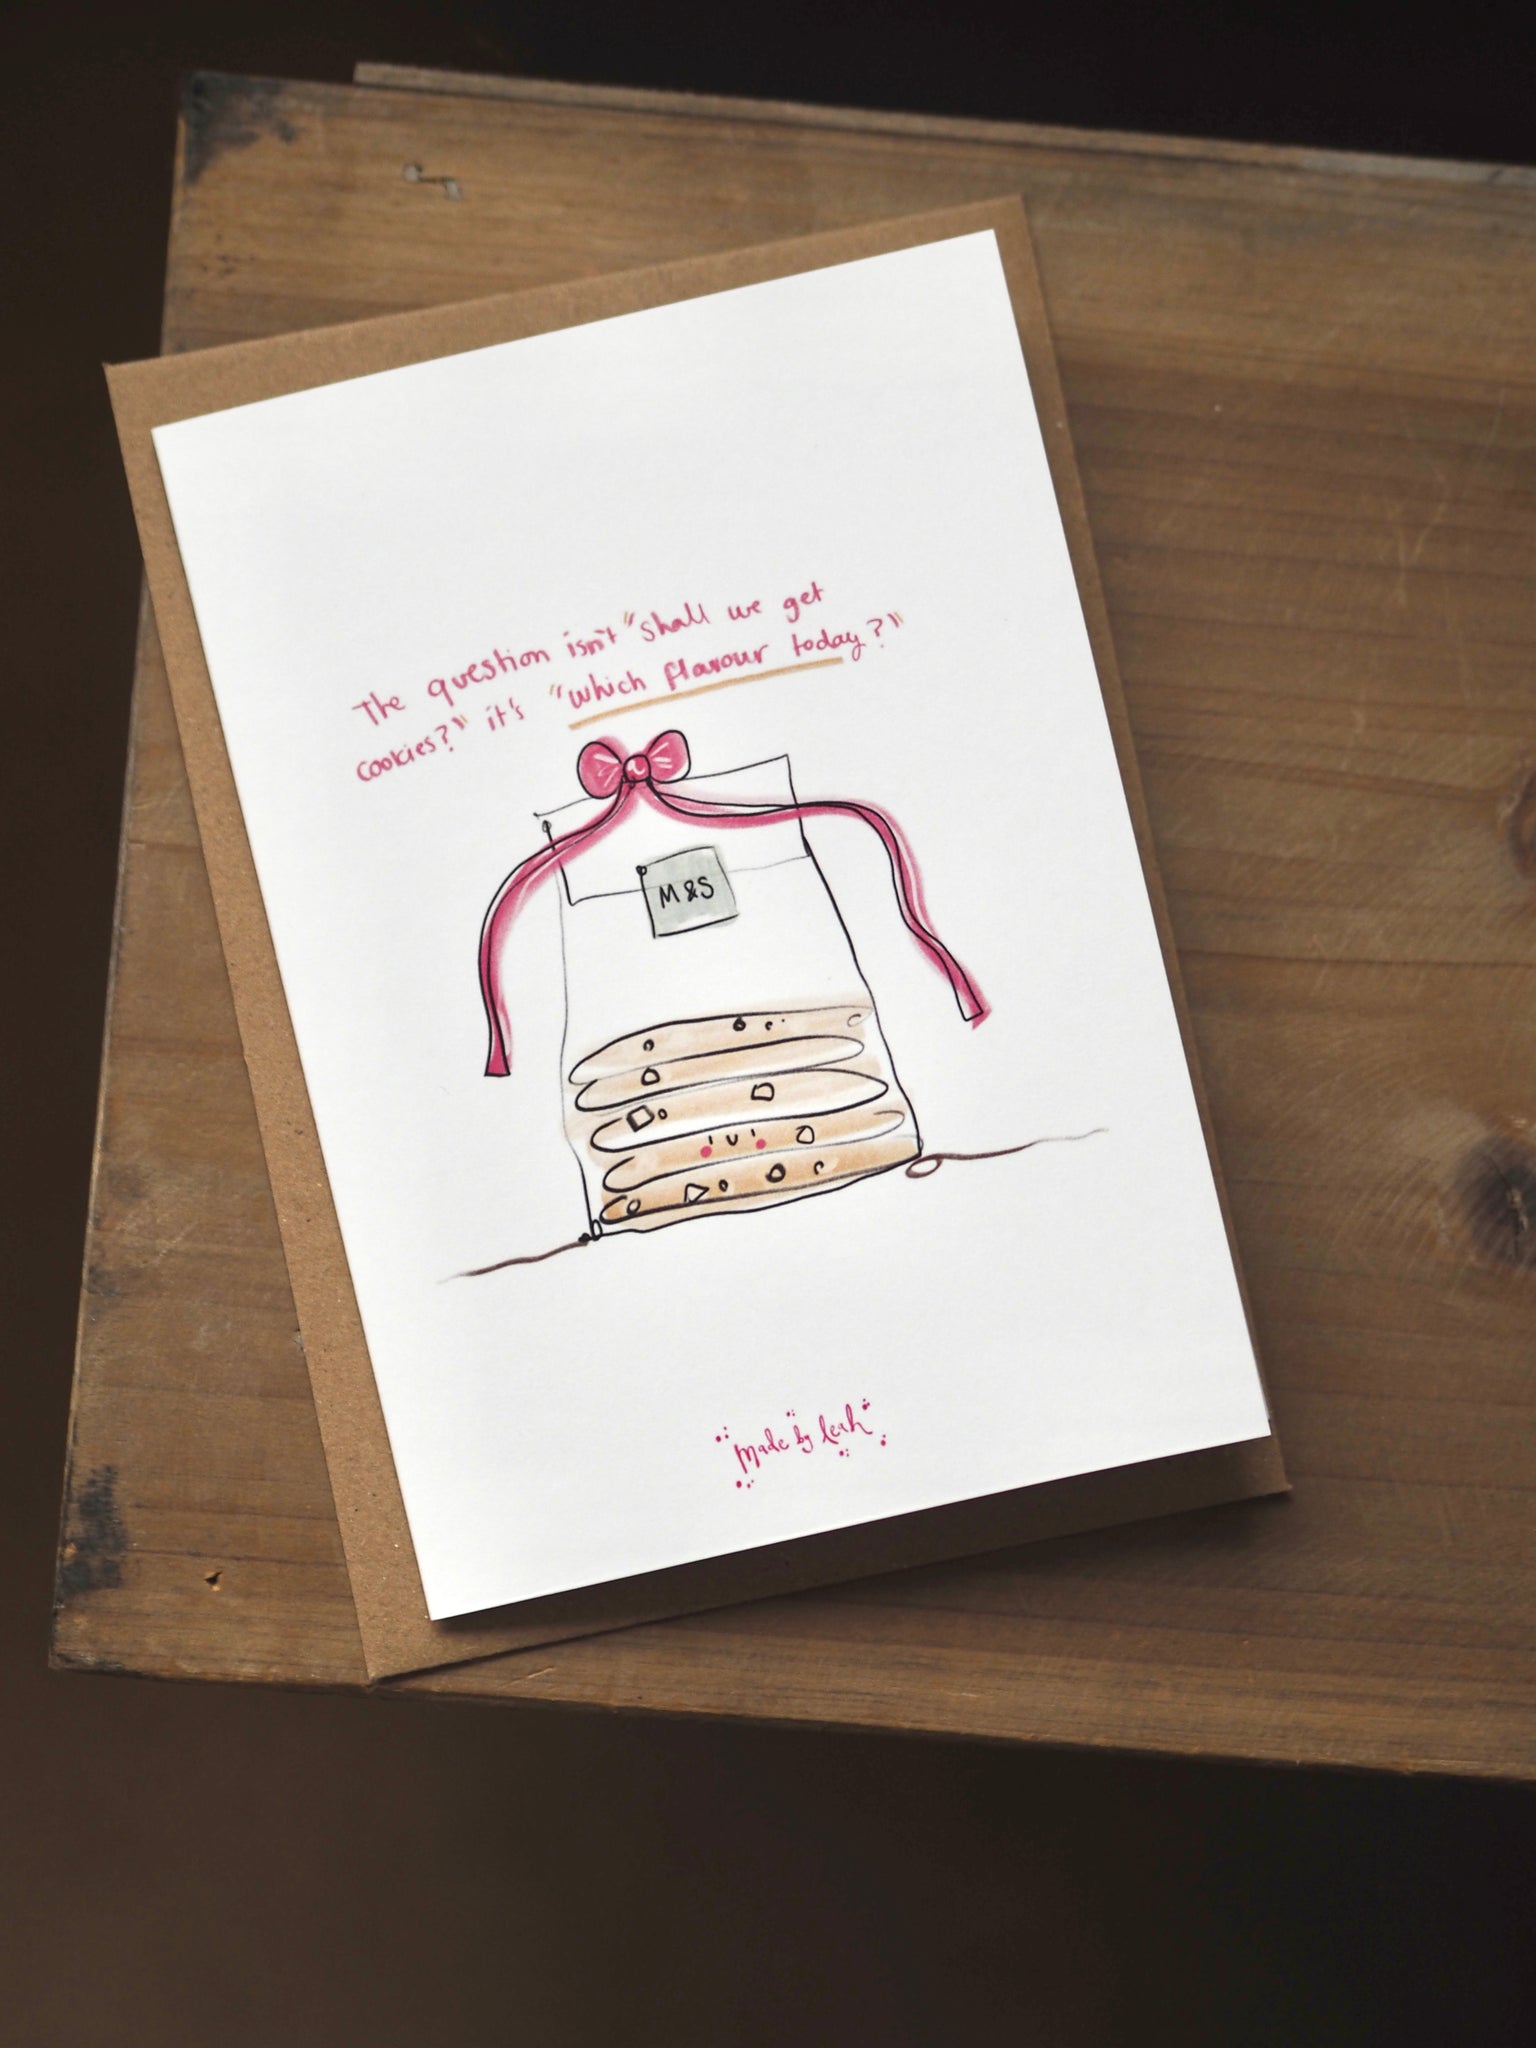 The question isn't "shall we get
cookies?" it's "which flavour today?"
M&S
made by leah